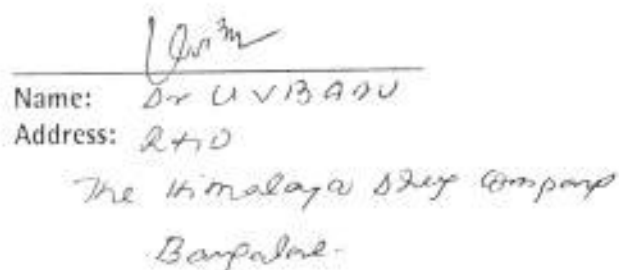 Name: Dr U V BABU
Address: R & D
The Himalaya Drug Company
Bangalore.